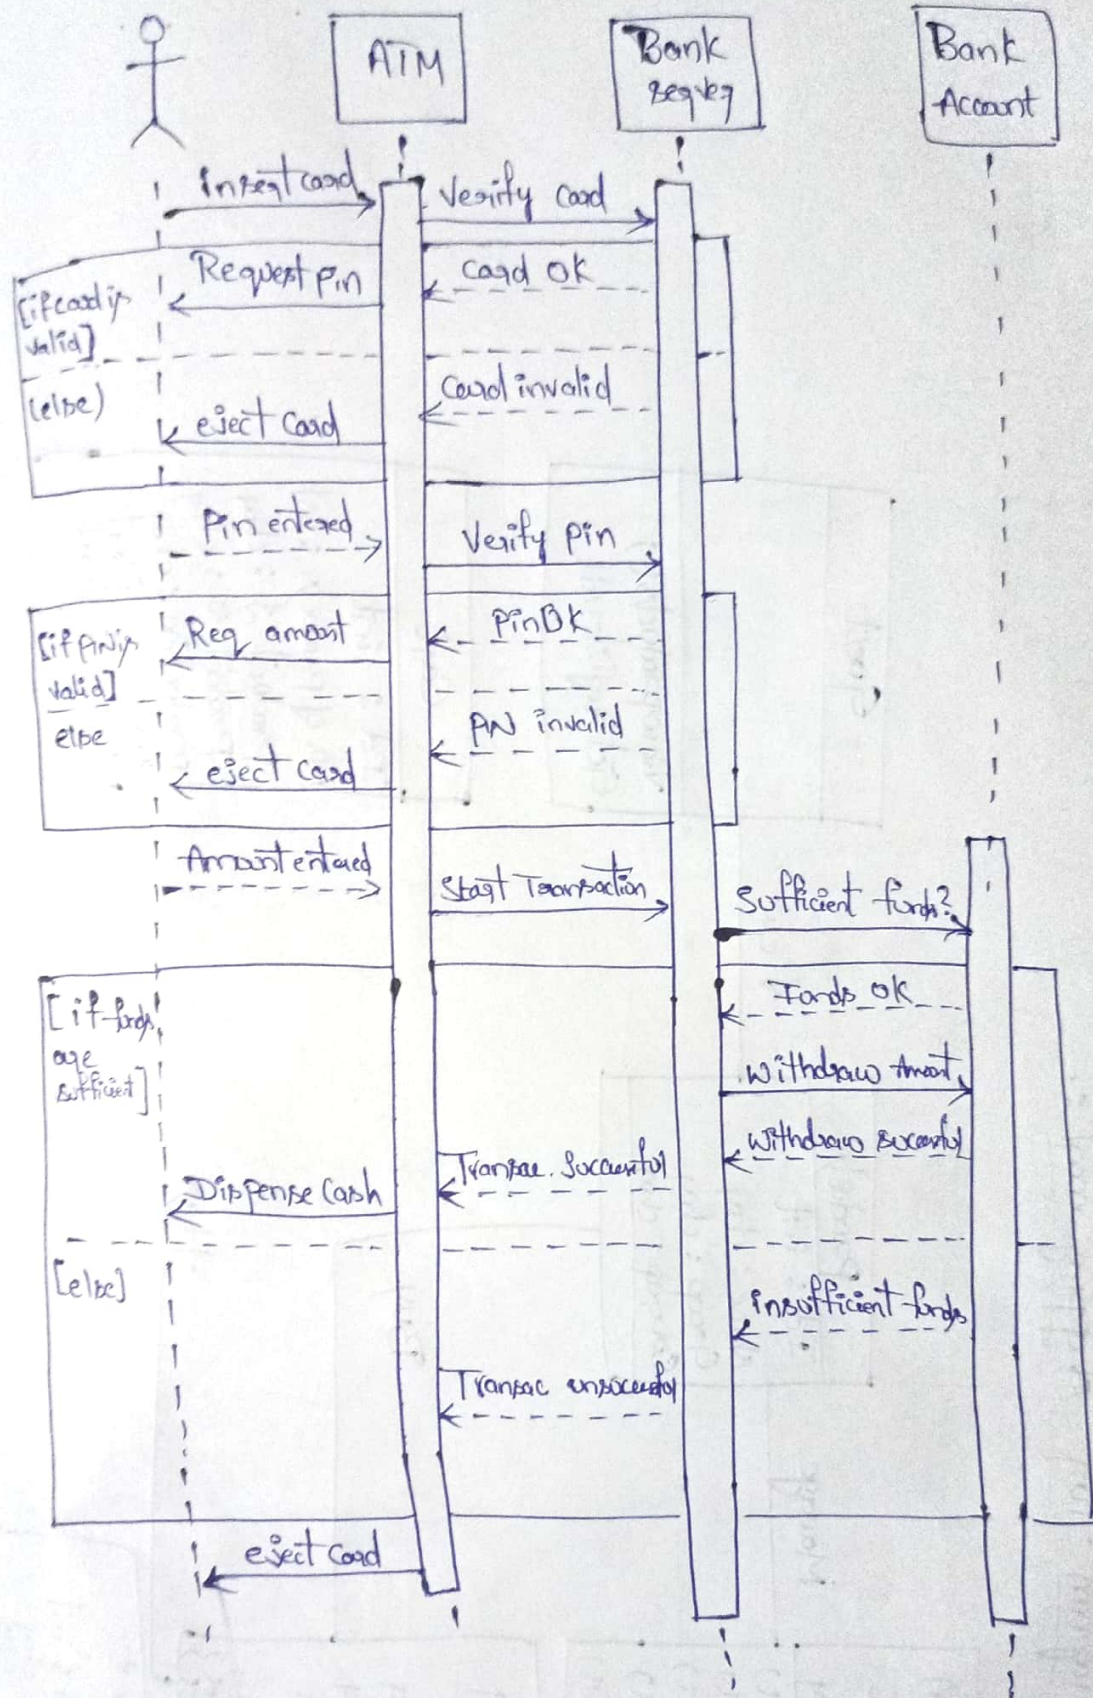 ATM
Bank
server
Bank
Account
insert card
Verify card
Request pin
card ok
[if card is
valid]
Card invalid
(else)
eject card
Pin entered
Verify pin
Req amount
Pin OK
[if PIN is
valid]
else
PIN invalid
eject card
Amount entered
Start Transaction
Sufficient funds?
[if funds
are
sufficient]
Funds ok
Withdraw Amount
Withdraw successful
Transac. Successful
Dispense Cash
[else]
insufficient funds
Transac unsuccessful
eject card